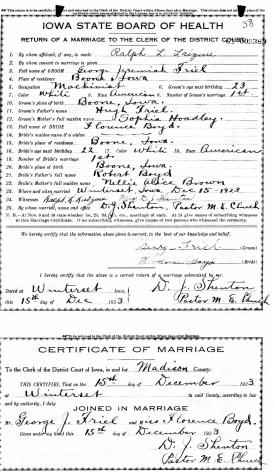 IOWA STATE BOARD OF HEALTH
RETURN OF A MARRIAGE TO THE CLERK OF THE DISTRICT COURT
1. By whom affidavit, if any, is made Ralph L.
2. By whom consent to marriage is given
3. Full name of GROOM George Jeremiah Friel
4. Place of residence Boone, Iowa
5. Occupation Machinist 6. Groom's age next birthday 23
White American 9. Number of Groom's marriage 1st
10. Groom's place of birth Boone, Iowa.
11. Groom's Father's name Hugh Friel
12. Groom's Mother's full maiden name Sophia Hoadley.
13. Full name of BRIDE Florence Boyd.
14. Bride's maiden name if a widow
15. Bride's place of residence Boone, Iowa.
16. Bride's age next birthday 22 17. Color White 18. Race American
19. Number of Bride's marriage 1st
20. Bride's place of birth Boone, Iowa.
21. Bride's Father's name Robert Boyd
22. Bride's Mother's full maiden name Nellie Alice Brown
23. Where and when married Winterset, Iowa, Dec 15-1923
24. Witnesses
25. By whom married, name and office D. J. Shenton, Pastor M. E. Church
We hereby certify that the information above given is correct, to the best of our knowledge and belief.
Friel (Groom)
(Bride)
I hereby certify that the above is a correct return of a marriage solemnized by me.
Dated at Winterset Iowa, D. J. Shenton
this 15th day of Dec 1923 Pastor M. E. Church
CERTIFICATE OF MARRIAGE
To the Clerk of the District Court of Iowa, in and for Madison County:
THIS CERTIFIES, That on the 15th day of December 1923
at Winterset in said County, according to law
and by authority, I duly
JOINED IN MARRIAGE
Mr. George J. Friel and Miss Florence Boyd.
Given under my hand this 15th day of December 1923
D. J. Shenton
Pastor M. E. Church